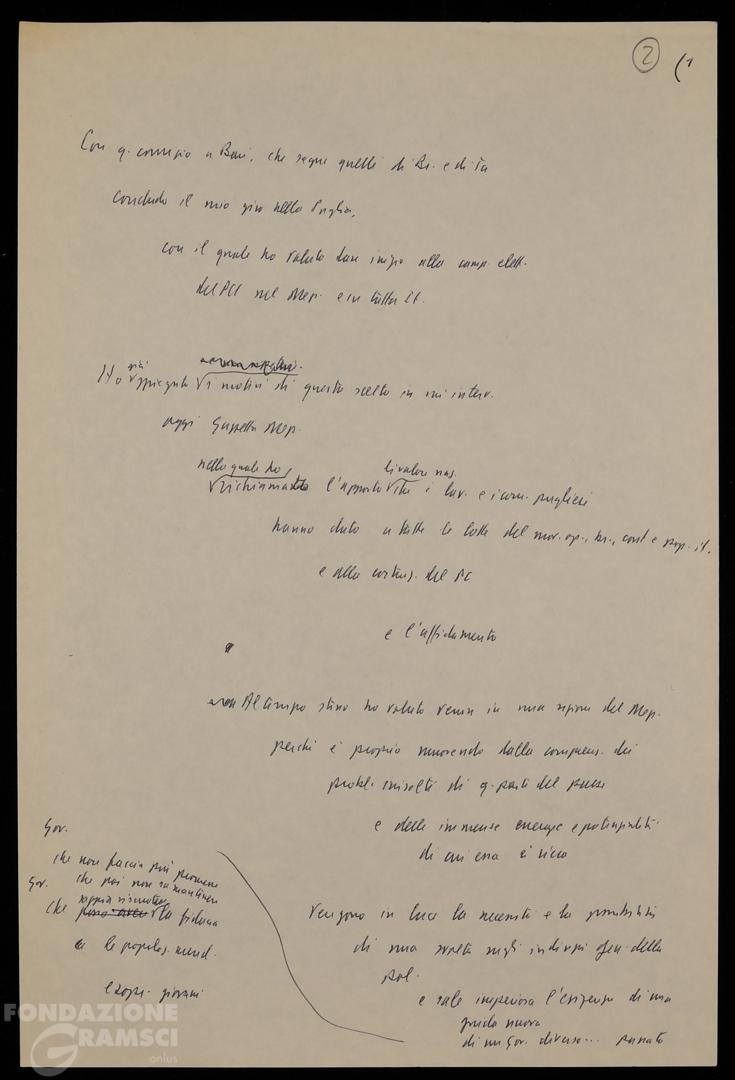 2 (1
Con q. comizio a Bari, che segue quelli di Br. e di Ta
concludo il mio giro nella Puglia,
con il quale ho voluto dare inizio alla camp. elett.
del PCI nel Mezz. e in tutta It.
Ho già spiegato i motivi di questa scelta in un'interv.
oggi Gazzetta Mezz.
nella quale ho, livalore naz.
richiamato l'apporto che i lav. e i com. pugliesi
hanno dato a tutte le lotte del mov. op., br., cont e pop. it.
e alla costruz. del PC
e l'affidamento
Al tempo stesso ho voluto venire in una regione del Mezz.
perché è proprio muovendo dalla comprens. dei
probl. irrisolti di q. parte del paese
e delle immense energie e potenzialità
di cui essa è ricca
Gov.
che non faccia più promesse
Gov. che poi non sa mantenere
sappia riscuotere
che la fiducia
le popolaz. merid.
e sopr. giovani
vengono in luce la necessità e la possibilità
di una svolta negli indirizzi gen. della
pol.
e sale imperiosa l'esigenza di una
guida nuova
di un Gov. diverso... passato
FONDAZIONE
GRAMSCI
onlus